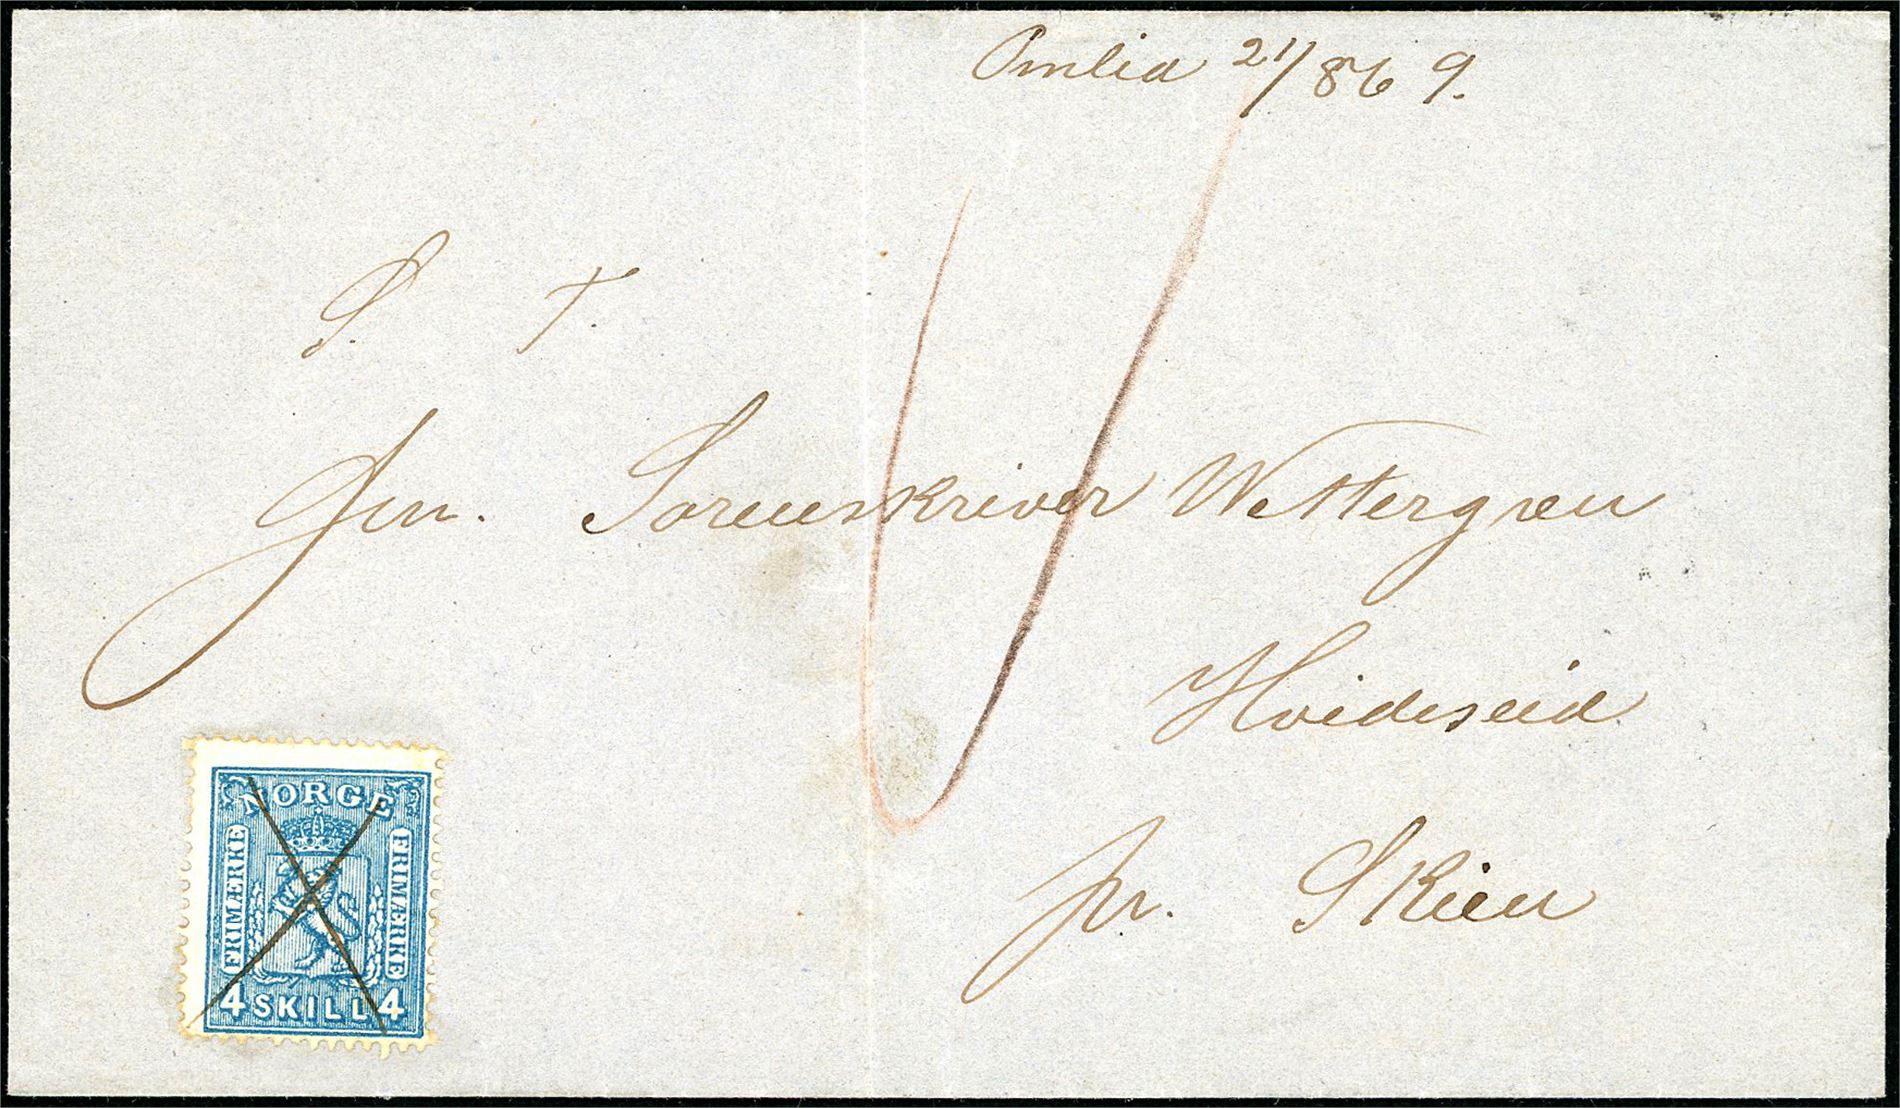 Omlid 21/8 69.
S. T.
Hrr. Sorenskriver Wettergren
Hvideseid
pr. Skien
NORGE
FRIMÆRKE
FRIMÆRKE
4 SKILL 4